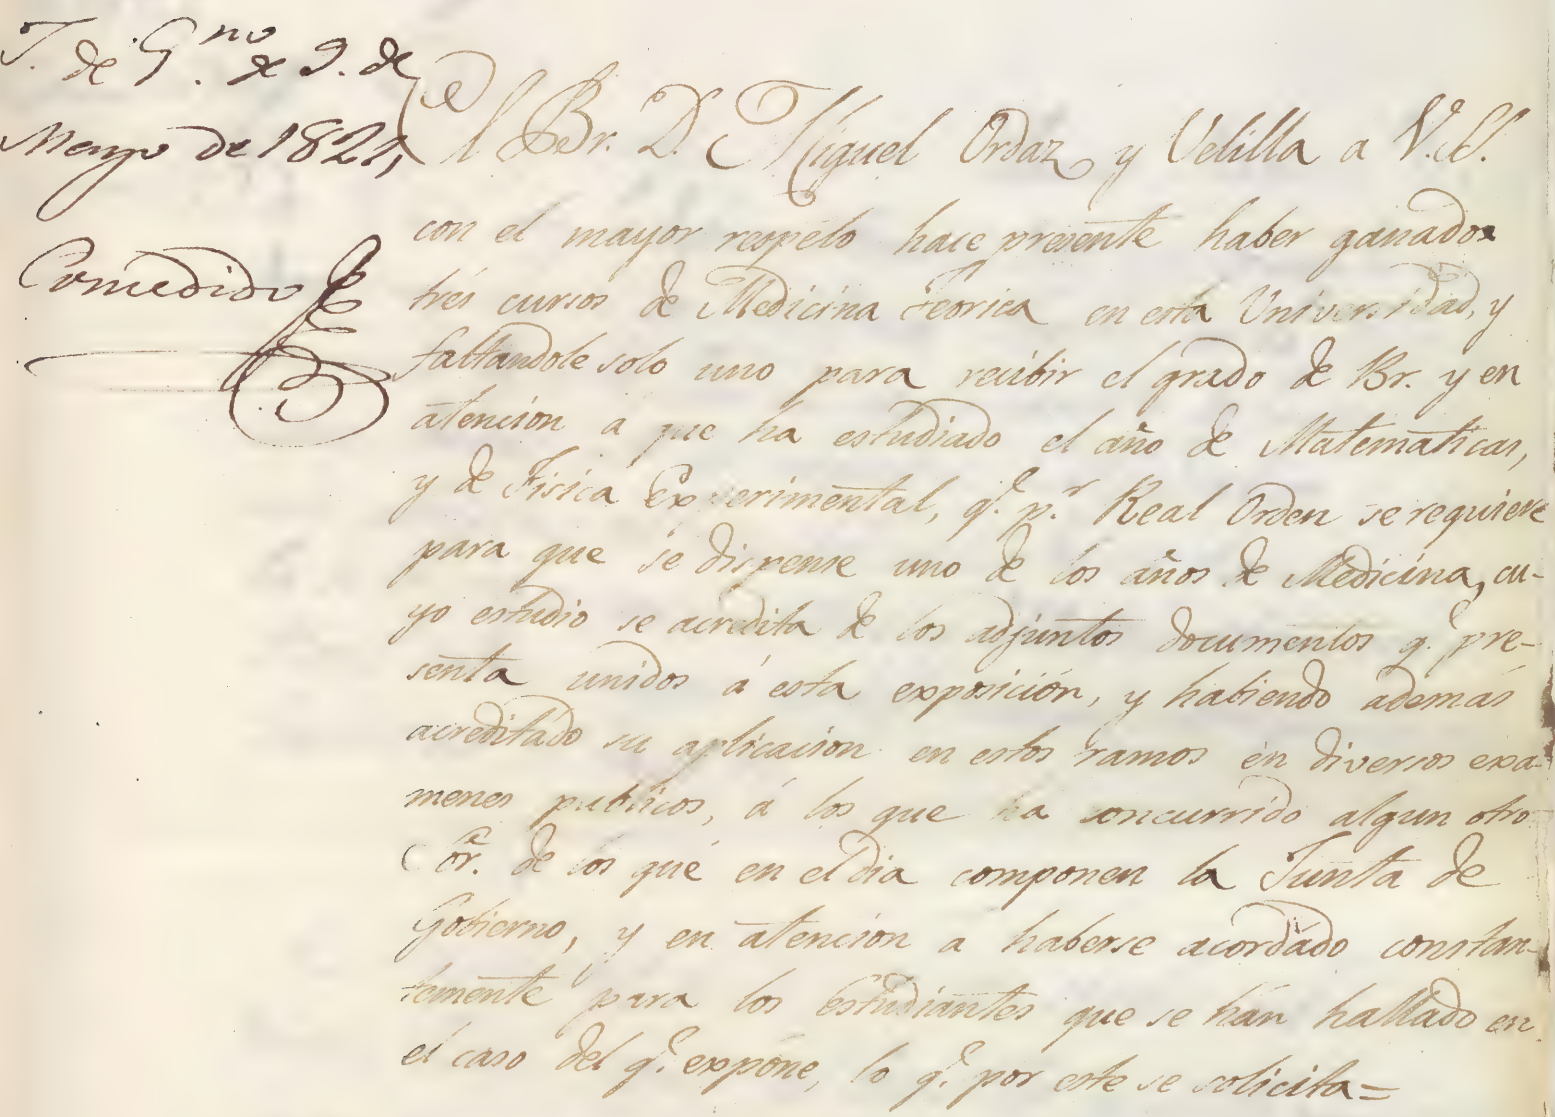 J. de G.no de 9. de
Mayo de 1821,
Comedido
El Br. D. Miguel Ordaz y Velilla a V.S.
con el mayor respeto hace presente haber ganado
trés cursos de Medicina Teorica en esta Universidad, y
faltandole solo uno para recibir el grado de Br. y en
atencion a que ha estudiado el año de Matematicas,
y de Fisica Experimental, q.e p.r Real Orden se requiere
para que se dispense uno de los años de Medicina, cu-
yo estudio se acredita de los adjuntos documentos q.e pre-
senta unidos á esta exposición, y habiendo además
acreditado su aplicacion en estos ramos en diversos exa-
menes publicos, á los que ha concurrido algun otro
Sõr. de los que en el dia componen la Junta de
Gobierno, y en atencion a haberse acordado constan-
temente para los estudiantes que se han hallado en
el caso del q.e expone, lo q.e por este se solicita=